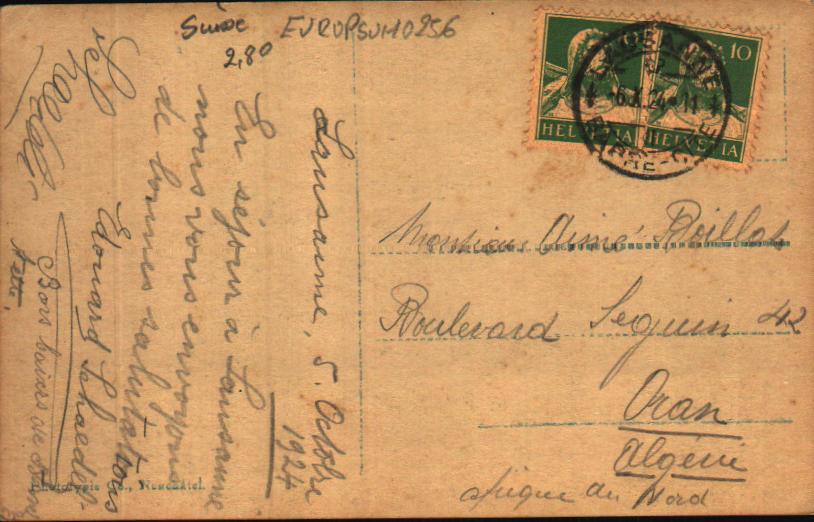 Suisse
2,80
EUROPSUI10256
Lausanne, 5. Octobre
1924
En séjour à Lausanne
nous vous envoyons
de bonnes salutations
Edouard Schaedel-
10
HELVETIA HELVETIA
LAUSANNE
6.X.24-11
Monsieur Aimé Boillat
Boulevard Seguin 42
Oran
Algérie
Afrique du Nord
Phototypie Co., Neuchâtel.